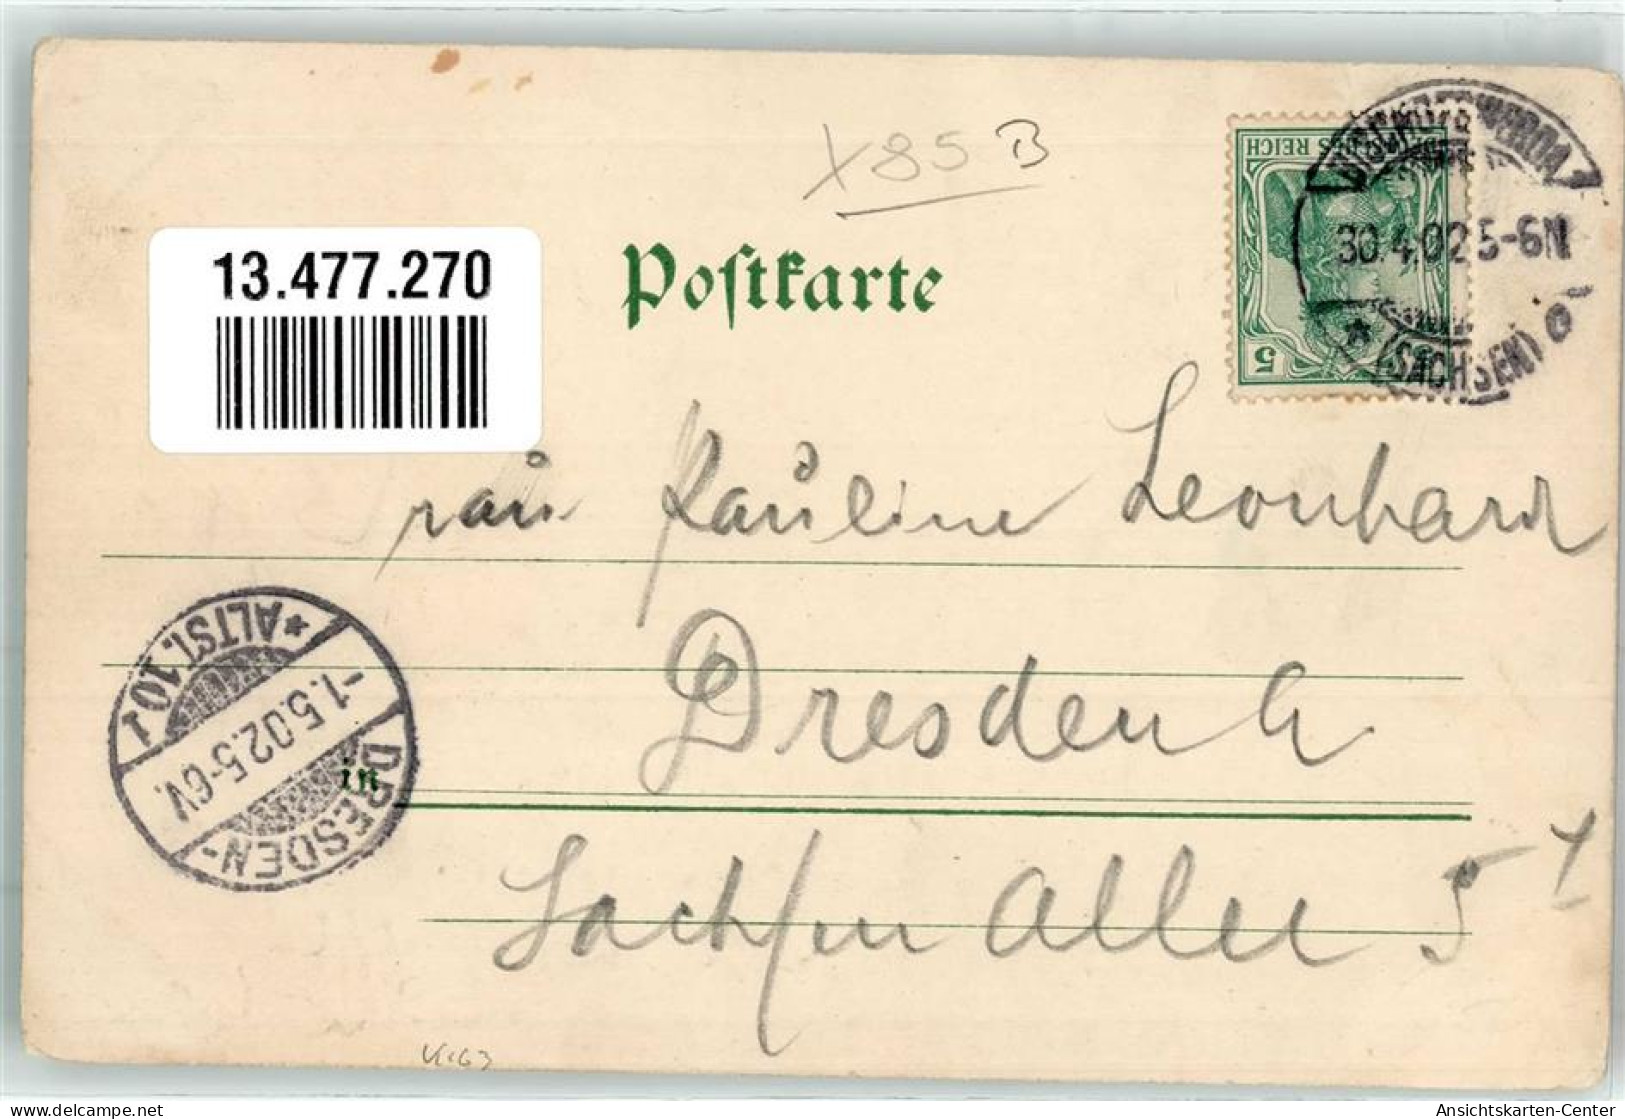 X85 B
13.477.270
Postkarte
DEUTSCHES REICH
5
BISCHOFSWERDA
30.4.02 5-6N
* (SACHSEN) c
rau Pauline Leonhard
*ALTST. 10 r
-1.5.02.5-6V.
DRESDEN-
Dresden A
in
Sachsen Allee 5 I
delcampe.net
Ansichtskarten-Center